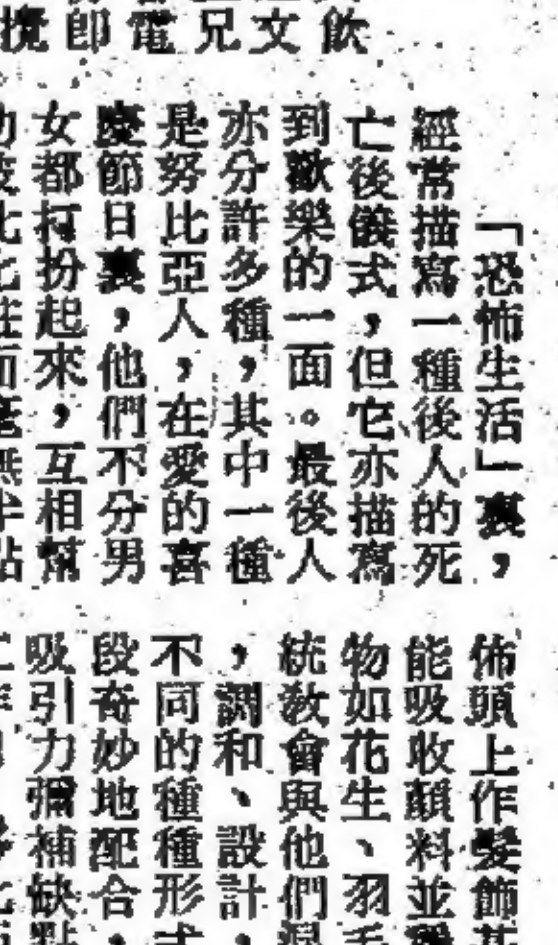 攪卽電兄文飲
「恐怖生活」裏，
經常描寫一種後人的死
亡後儀式，但它亦描寫
到歡樂的一面。最後人
亦分許多種，其中一種
是努比亞人，在愛的喜
慶節日裏，他們不分男
女都打扮起來，互相幫
佈頭上作髮飾
能吸收顏料並
物如花生、羽毛
統教會與他們
，調和、設計，
不同的種種形式
段奇妙地配合，
吸引力彌補缺點